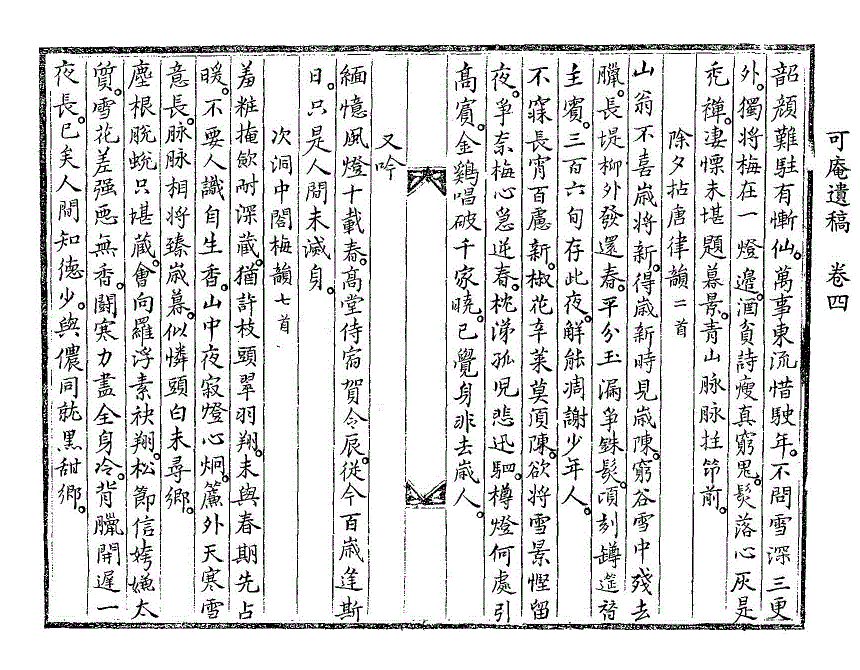 可庵遺稿　卷四
韶顔難駐有慚仙。萬事東流惜駛年。不問雪深三更
外。獨將梅在一燈邊。酒貧詩瘦眞窮鬼。髮落心灰是
禿禪。凄慄未堪題暮景。靑山脉脉拄笻前。
除夕拈唐律韻二首
山翁不喜歲將新。得歲新時見歲陳。窮谷雪中殘去
臘。長堤柳外發還春。平分玉漏爭銖髮。頃刻罇筵替
主賓。三百六旬存此夜。解能凋謝少年人。
不寐長宵百慮新。椒花辛菜莫須陳。欲將雪景慳留
夜。爭奈梅心急逆春。枕涕孤兒悲迅駟。樽燈何處引
高賓。金鷄唱破千家曉。已覺身非去歲人。
又吟
緬憶風燈十載春。高堂侍宿賀今辰。從今百歲逢斯
日。只是人間未滅身。
次洞中閤梅韻七首
羞粧掩歛耐深藏。猶許枝頭翠羽翔。未與春期先占
暖。不要人識自生香。山中夜寂燈心炯。簾外天寒雪
意長。脉脉相將臻歲暮。似憐頭白未尋鄕。
塵根脫蛻只堪藏。會向羅浮素袂翔。松節信姱嫌太
質。雪花差强恧無香。鬪寒力盡全身冷。背臘開遲一
夜長。已矣人間知德少。與儂同就黑甜鄕。